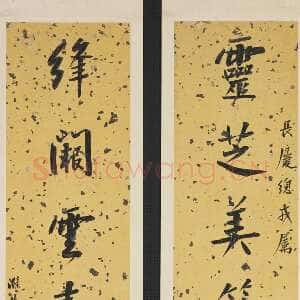 靈芝美
長慶總戎屬
絳闕雲
Shufawang.cn